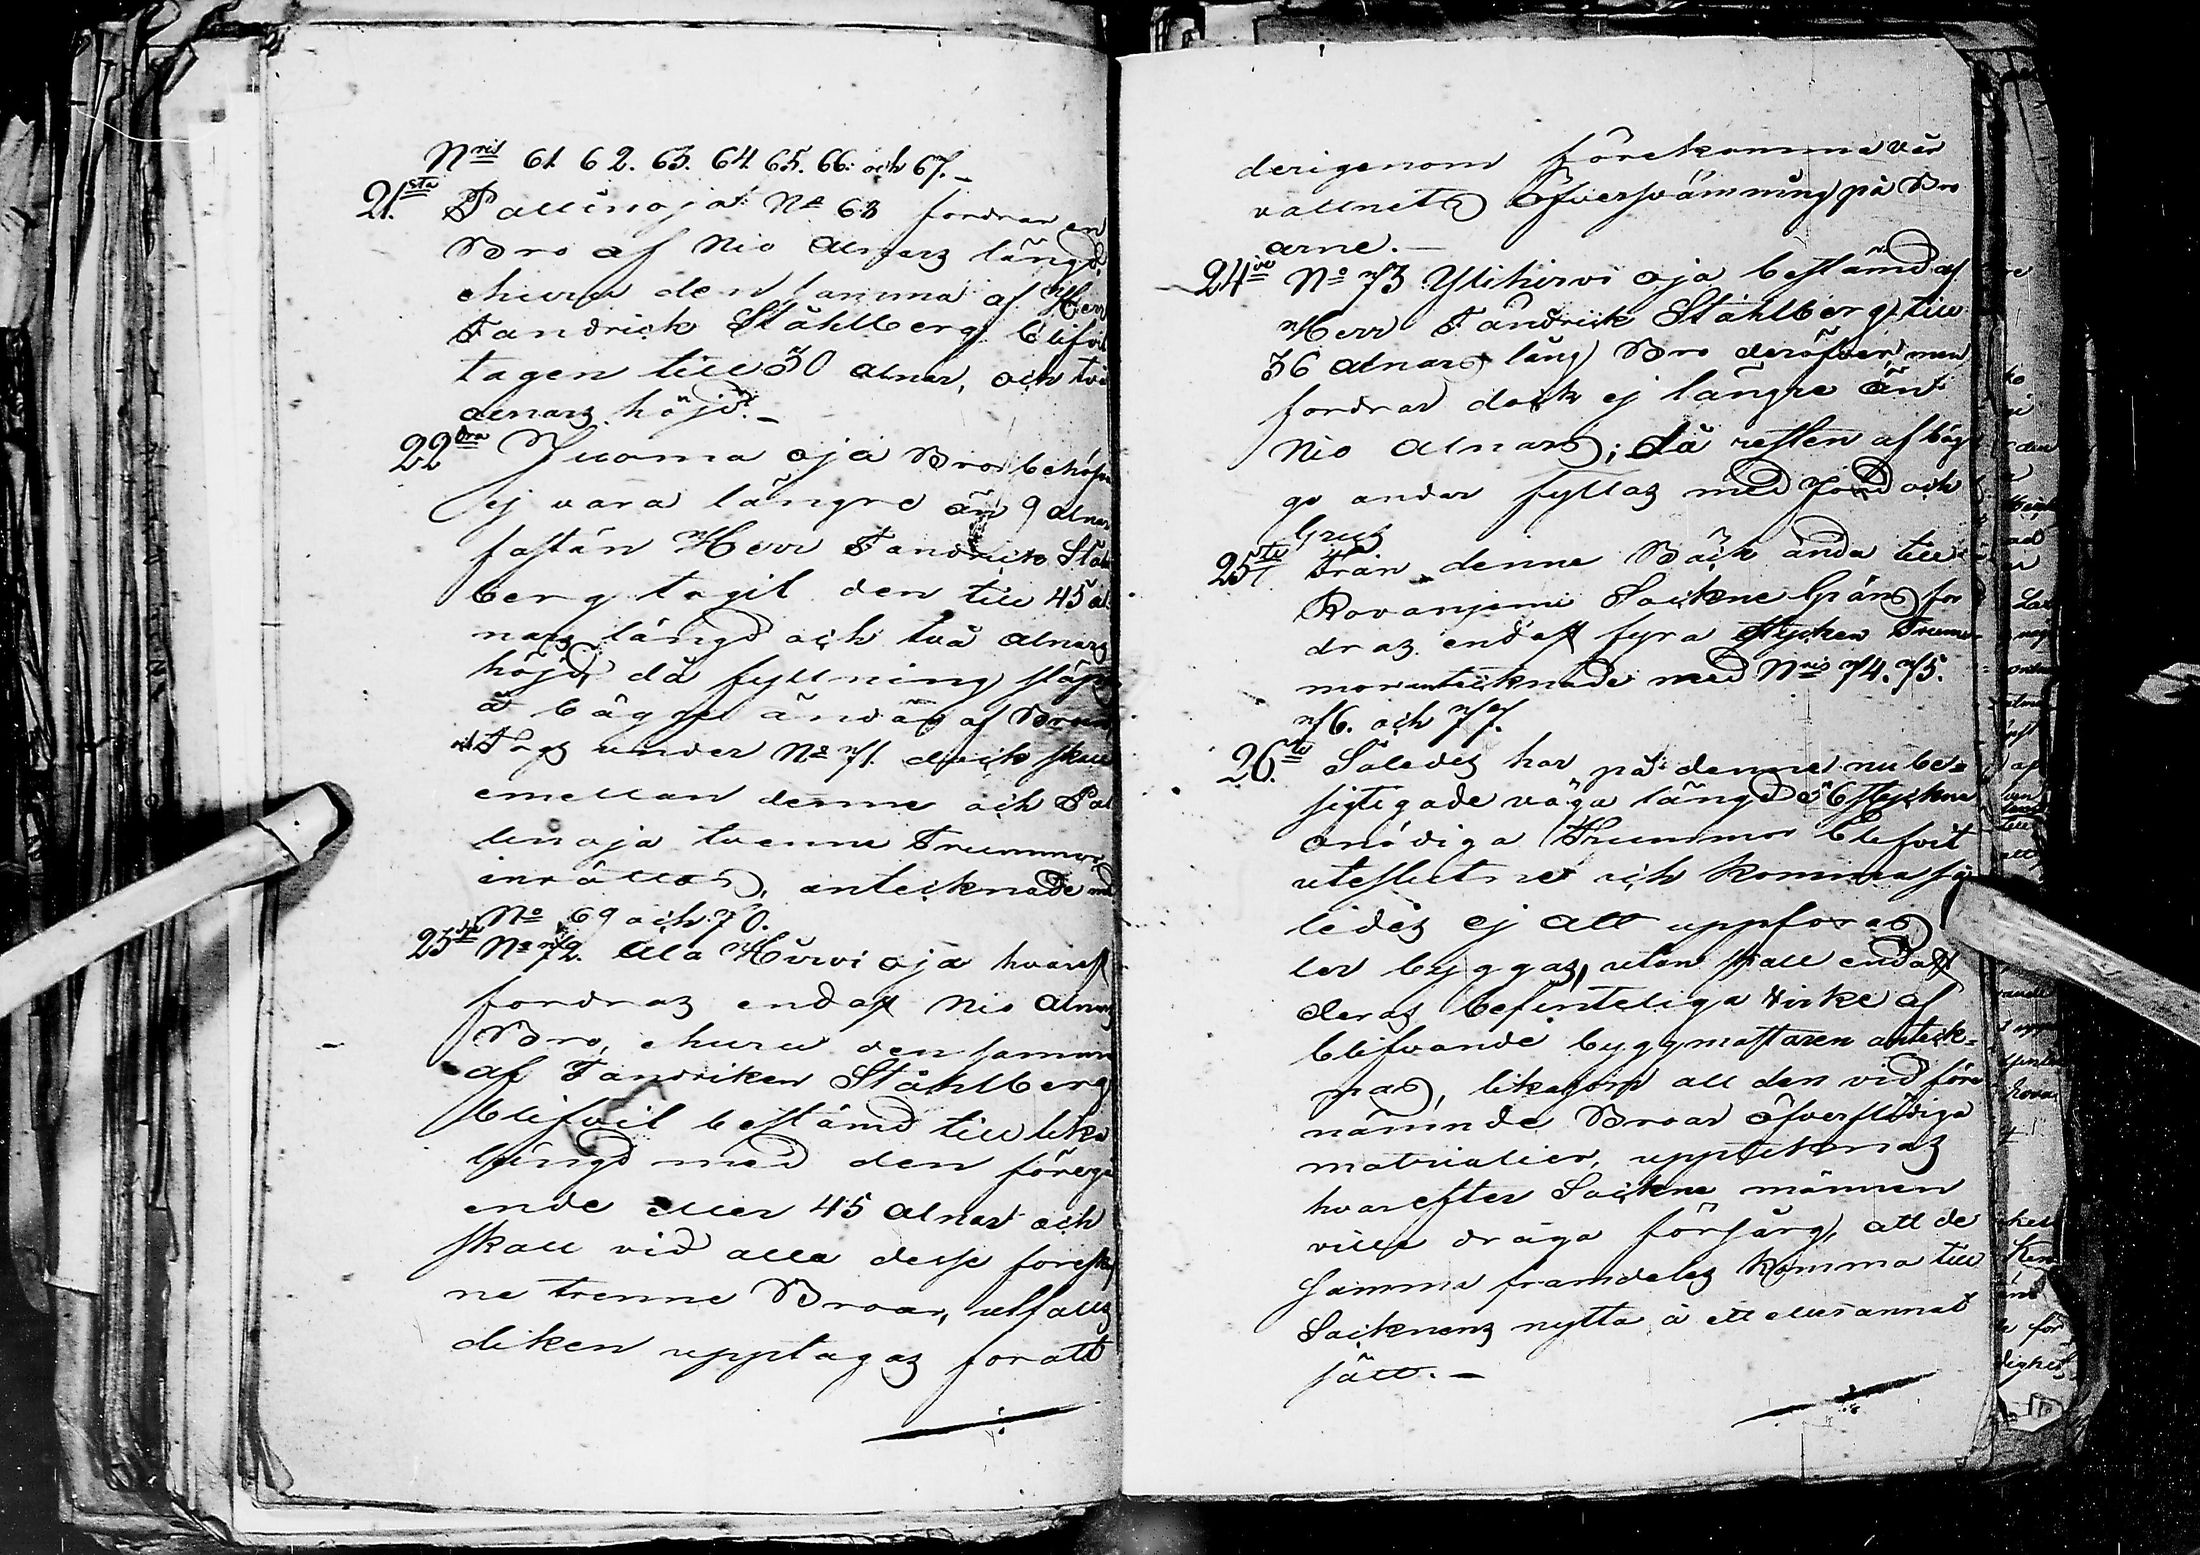 Nris 61. 62. 63. 64. 65. 66. och 67. –
21.sta Pallinoja No 68 fordrar en
Bro af Nio alnars längd,
ehuru den samma af Herr
Fandrick Ståhlberg blifvit
tagen till 30 alnar, och två
alnars höjd. –
22dra Juoma oja Bro behöfver
ej vara längre än 9 alnar
fastän Herr Fandrick Ståhl
berg tagit den till 45 al
nars längd och två alnars
höjd, då fyllning
å bägge ändar af Broen
under No 71. dock skall
emellan denne och Pal
linoja tvenne Trummor
inrättas, antecknade med
No 69 och 70.
23dje No 72. Ala Hirvi oja hvarest
fordras endast Nio alnars
Bro, ehuru den samma
af Fandriken Ståhlberg
blifvit bestämd till lika
längd med den föregå
ende eller 45 alnar och
skall vid alla desse föreskrif
ne trenne Broar, utfalls
diken upptagas för att
derigenom förekomma vår
vattnets öfversvämning på Bro
arne. –
24de No 73 Ylihirvi oja bestämd af
Herr Fandrick Ståhlberg till
36 alnars lång Bro deröfver, men
fordrar dock ej längre än
Nio alnars; då resten af bäg
ge andar fyllas med jord och
Grus
25te Från denne Bäck ända till
Rovanjemi Sockne Gräns for
dras endast fyra stycken Trum
mor antecknade med Nris 74. 75.
76. och 77.
26.te Således har på denne nu be=
sigtigade väga längd 56 stycken
onödiga Trummor blefvit
uteslutne och komma så
ledes ej att uppföras
ler byggas, utan skall endast
deras befinteliga virke af
blifvande byggmästaren anteck=
nas, likasom all den vid före
nämnde Broar öfverflödiga
matrialier, upptecknas
hvarefter Sockne männen
ville draga försorg, att de
samma framdeles komma till
Socknens nytta å ett eller annat
sätt. –